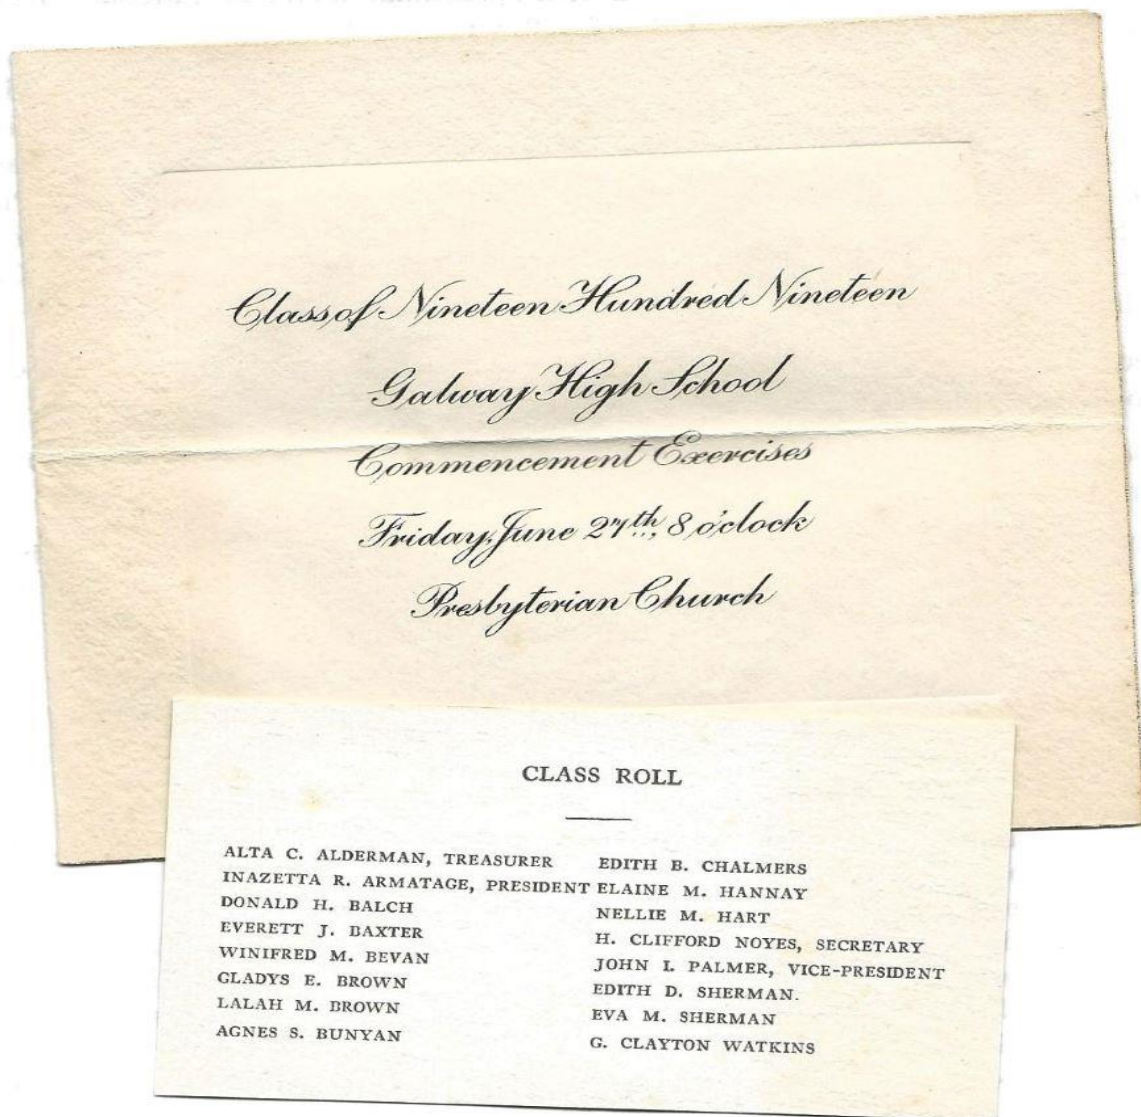 Class of Nineteen Hundred Nineteen
Galway High School
Commencement Exercises
Friday, June 27th, 8 o'clock
Presbyterian Church
CLASS ROLL
ALTA C. ALDERMAN, TREASURER
INAZETTA R. ARMATAGE, PRESIDENT
DONALD H. BALCH
EVERETT J. BAXTER
WINIFRED M. BEVAN
GLADYS E. BROWN
LALAH M. BROWN
AGNES S. BUNYAN
EDITH B. CHALMERS
ELAINE M. HANNAY
NELLIE M. HART
H. CLIFFORD NOYES, SECRETARY
JOHN I. PALMER, VICE-PRESIDENT
EDITH D. SHERMAN.
EVA M. SHERMAN
G. CLAYTON WATKINS